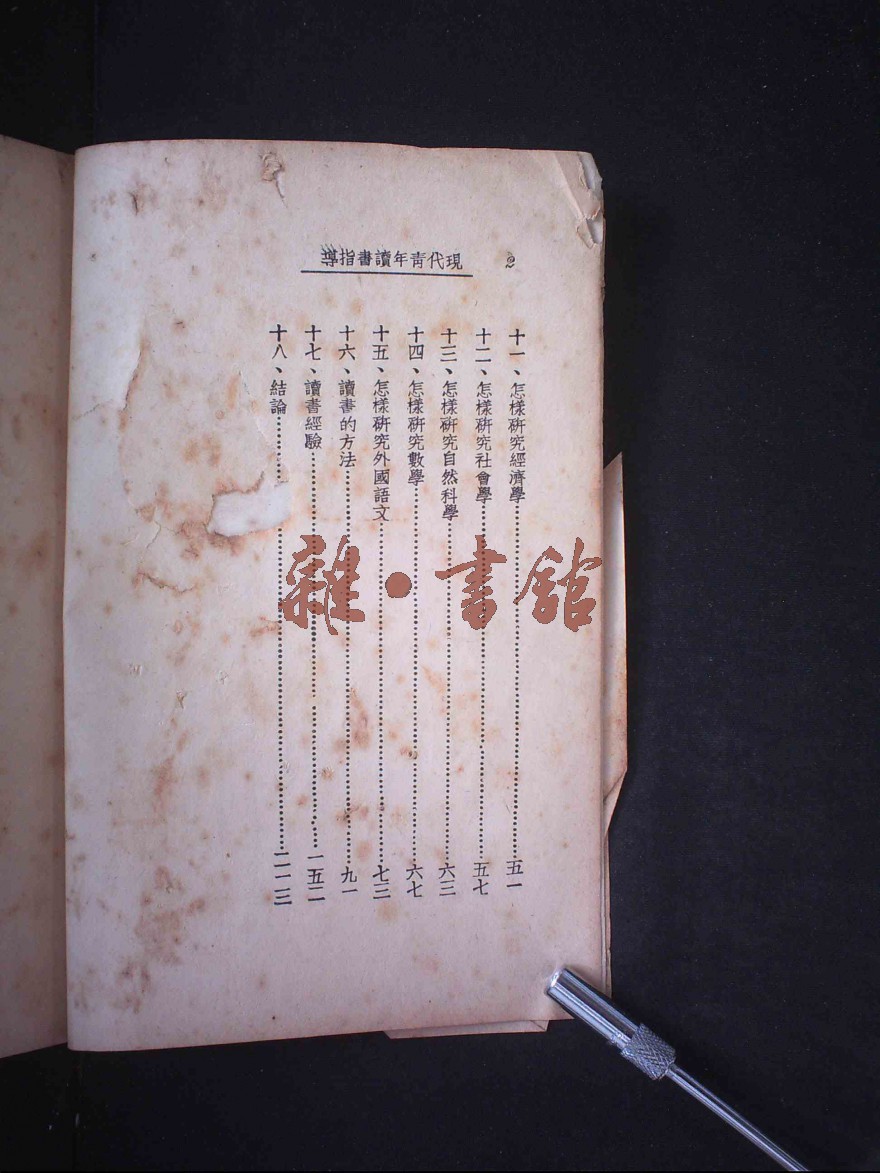 2
現代青年讀書指導
十一、怎樣硏究經濟學……五一
十二、怎樣硏究社會學……五七
十三、怎樣硏究自然科學……六三
十四、怎樣硏究數學……六七
十五、怎樣硏究外國語文……七三
十六、讀書的方法……九一
十七、讀書經驗……一五二
十八、結論……二一三
雜·書館